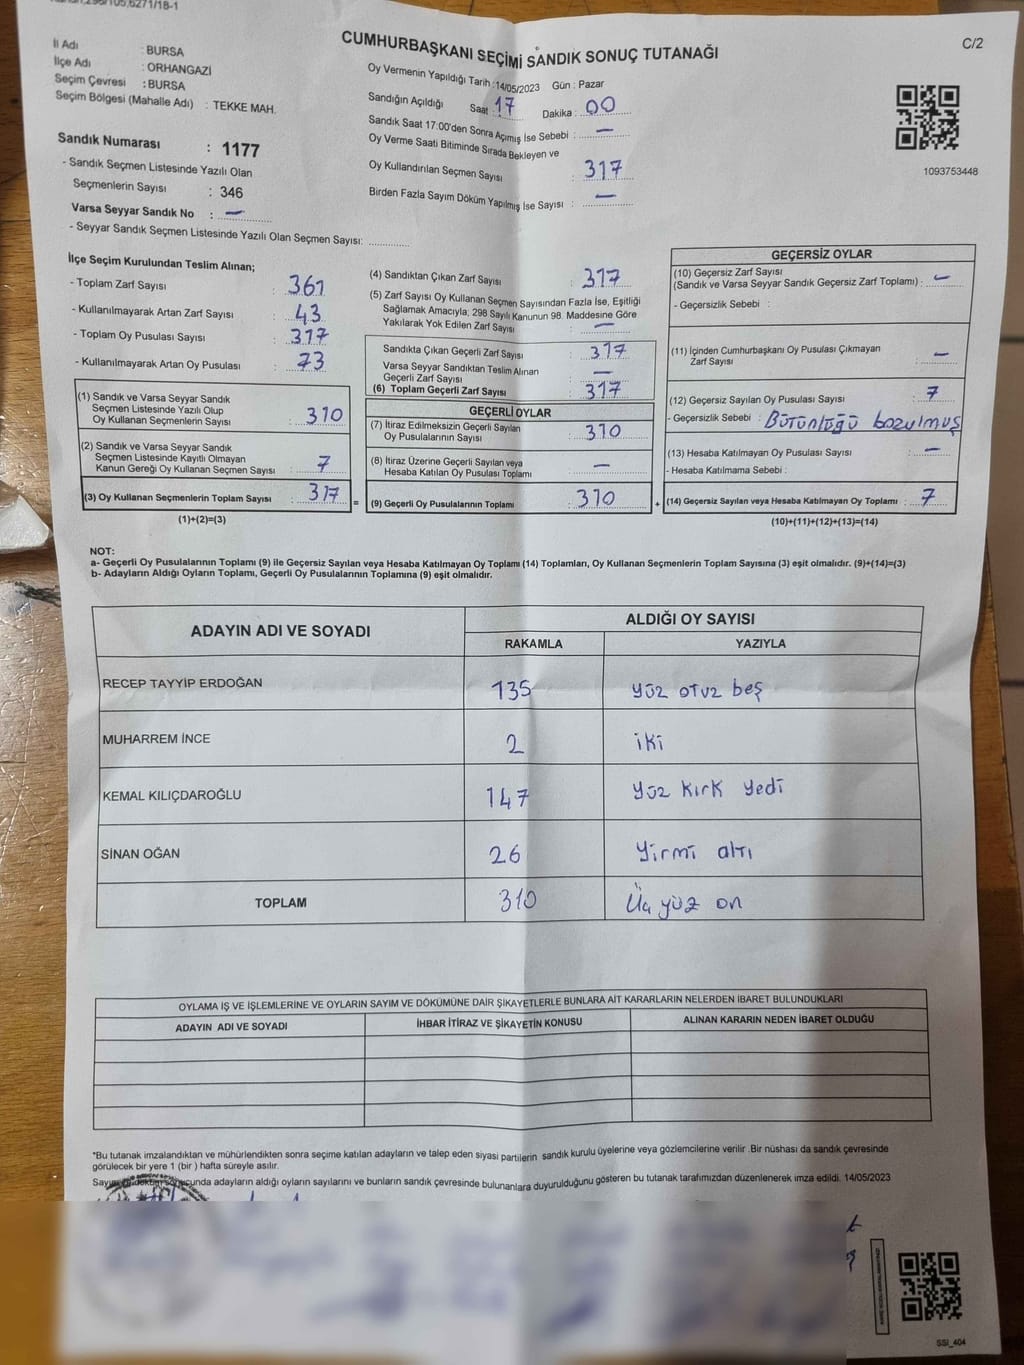 C/2
CUMHURBAŞKANI SEÇİMİ SANDIK SONUÇ TUTANAĞI
İl Adı : BURSA
İlçe Adı : ORHANGAZİ
Seçim Çevresi : BURSA
Seçim Bölgesi (Mahalle Adı) : TEKKE MAH.
Sandık Numarası : 1177
- Sandık Seçmen Listesinde Yazılı Olan
Seçmenlerin Sayısı : 346
Varsa Seyyar Sandık No : —
- Seyyar Sandık Seçmen Listesinde Yazılı Olan Seçmen Sayısı: ............
Oy Vermenin Yapıldığı Tarih :14/05/2023 Gün : Pazar
Sandığın Açıldığı Saat 17 Dakika : 00
Sandık Saat 17:00'den Sonra Açımış İse Sebebi : —
Oy Verme Saati Bitiminde Sırada Bekleyen ve
Oy Kullandırılan Seçmen Sayısı : 317
Birden Fazla Sayım Döküm Yapılmış İse Sayısı : —
1093753448
İlçe Seçim Kurulundan Teslim Alınan;
- Toplam Zarf Sayısı : 361
- Kullanılmayarak Artan Zarf Sayısı : 43
- Toplam Oy Pusulası Sayısı : 317
- Kullanılmayarak Artan Oy Pusulası : 73
(1) Sandık ve Varsa Seyyar Sandık
Seçmen Listesinde Yazılı Olup
Oy Kullanan Seçmenlerin Sayısı : 310
(2) Sandık ve Varsa Seyyar Sandık
Seçmen Listesinde Kayıtlı Olmayan
Kanun Gereği Oy Kullanan Seçmen Sayısı : 7
(3) Oy Kullanan Seçmenlerin Toplam Sayısı : 317
(1)+(2)=(3)
(4) Sandıktan Çıkan Zarf Sayısı : 317
(5) Zarf Sayısı Oy Kullanan Seçmen Sayısından Fazla İse, Eşitliği
Sağlamak Amacıyla; 298 Sayılı Kanunun 98. Maddesine Göre
Yakılarak Yok Edilen Zarf Sayısı : —
Sandıkta Çıkan Geçerli Zarf Sayısı : 317
Varsa Seyyar Sandıktan Teslim Alınan
Geçerli Zarf Sayısı : —
(6) Toplam Geçerli Zarf Sayısı : 317
GEÇERLİ OYLAR
(7) İtiraz Edilmeksizin Geçerli Sayılan
Oy Pusulalarının Sayısı : 310
(8) İtiraz Üzerine Geçerli Sayılan veya
Hesaba Katılan Oy Pusulası Toplamı : —
= (9) Geçerli Oy Pusulalarının Toplamı : 310
GEÇERSİZ OYLAR
(10) Geçersiz Zarf Sayısı
(Sandık ve Varsa Seyyar Sandık Geçersiz Zarf Toplamı) : —
- Geçersizlik Sebebi :
(11) İçinden Cumhurbaşkanı Oy Pusulası Çıkmayan
Zarf Sayısı : —
(12) Geçersiz Sayılan Oy Pusulası Sayısı : 7
- Geçersizlik Sebebi : Bütünlüğü bozulmuş
(13) Hesaba Katılmayan Oy Pusulası Sayısı : —
- Hesaba Katılmama Sebebi :
+ (14) Geçersiz Sayılan veya Hesaba Katılmayan Oy Toplamı : 7
(10)+(11)+(12)+(13)=(14)
NOT:
a- Geçerli Oy Pusulalarının Toplamı (9) ile Geçersiz Sayılan veya Hesaba Katılmayan Oy Toplamı (14) Toplamları, Oy Kullanan Seçmenlerin Toplam Sayısına (3) eşit olmalıdır. (9)+(14)=(3)
b- Adayların Aldığı Oyların Toplamı, Geçerli Oy Pusulalarının Toplamına (9) eşit olmalıdır.
ADAYIN ADI VE SOYADI ALDIĞI OY SAYISI
RAKAMLA YAZIYLA
RECEP TAYYİP ERDOĞAN 135 yüz otuz beş
MUHARREM İNCE 2 iki
KEMAL KILIÇDAROĞLU 147 yüz kırk yedi
SİNAN OĞAN 26 yirmi altı
TOPLAM 310 Üç yüz on
OYLAMA İŞ VE İŞLEMLERİNE VE OYLARIN SAYIM VE DÖKÜMÜNE DAİR ŞİKAYETLERLE BUNLARA AİT KARARLARIN NELERDEN İBARET BULUNDUKLARI
ADAYIN ADI VE SOYADI İHBAR İTİRAZ VE ŞİKAYETİN KONUSU ALINAN KARARIN NEDEN İBARET OLDUĞU
*Bu tutanak imzalandıktan ve mühürlendikten sonra seçime katılan adayların ve talep eden siyasi partilerin sandık kurulu üyelerine veya gözlemcilerine verilir .Bir nüshası da sandık çevresinde
görülecek bir yere 1 (bir ) hafta süreyle asılır.
adayların aldığı oyların sayılarını ve bunların sandık çevresinde bulunanlara duyurulduğunu gösteren bu tutanak tarafımızdan düzenlenerek imza edildi. 14/05/2023
SSI_404